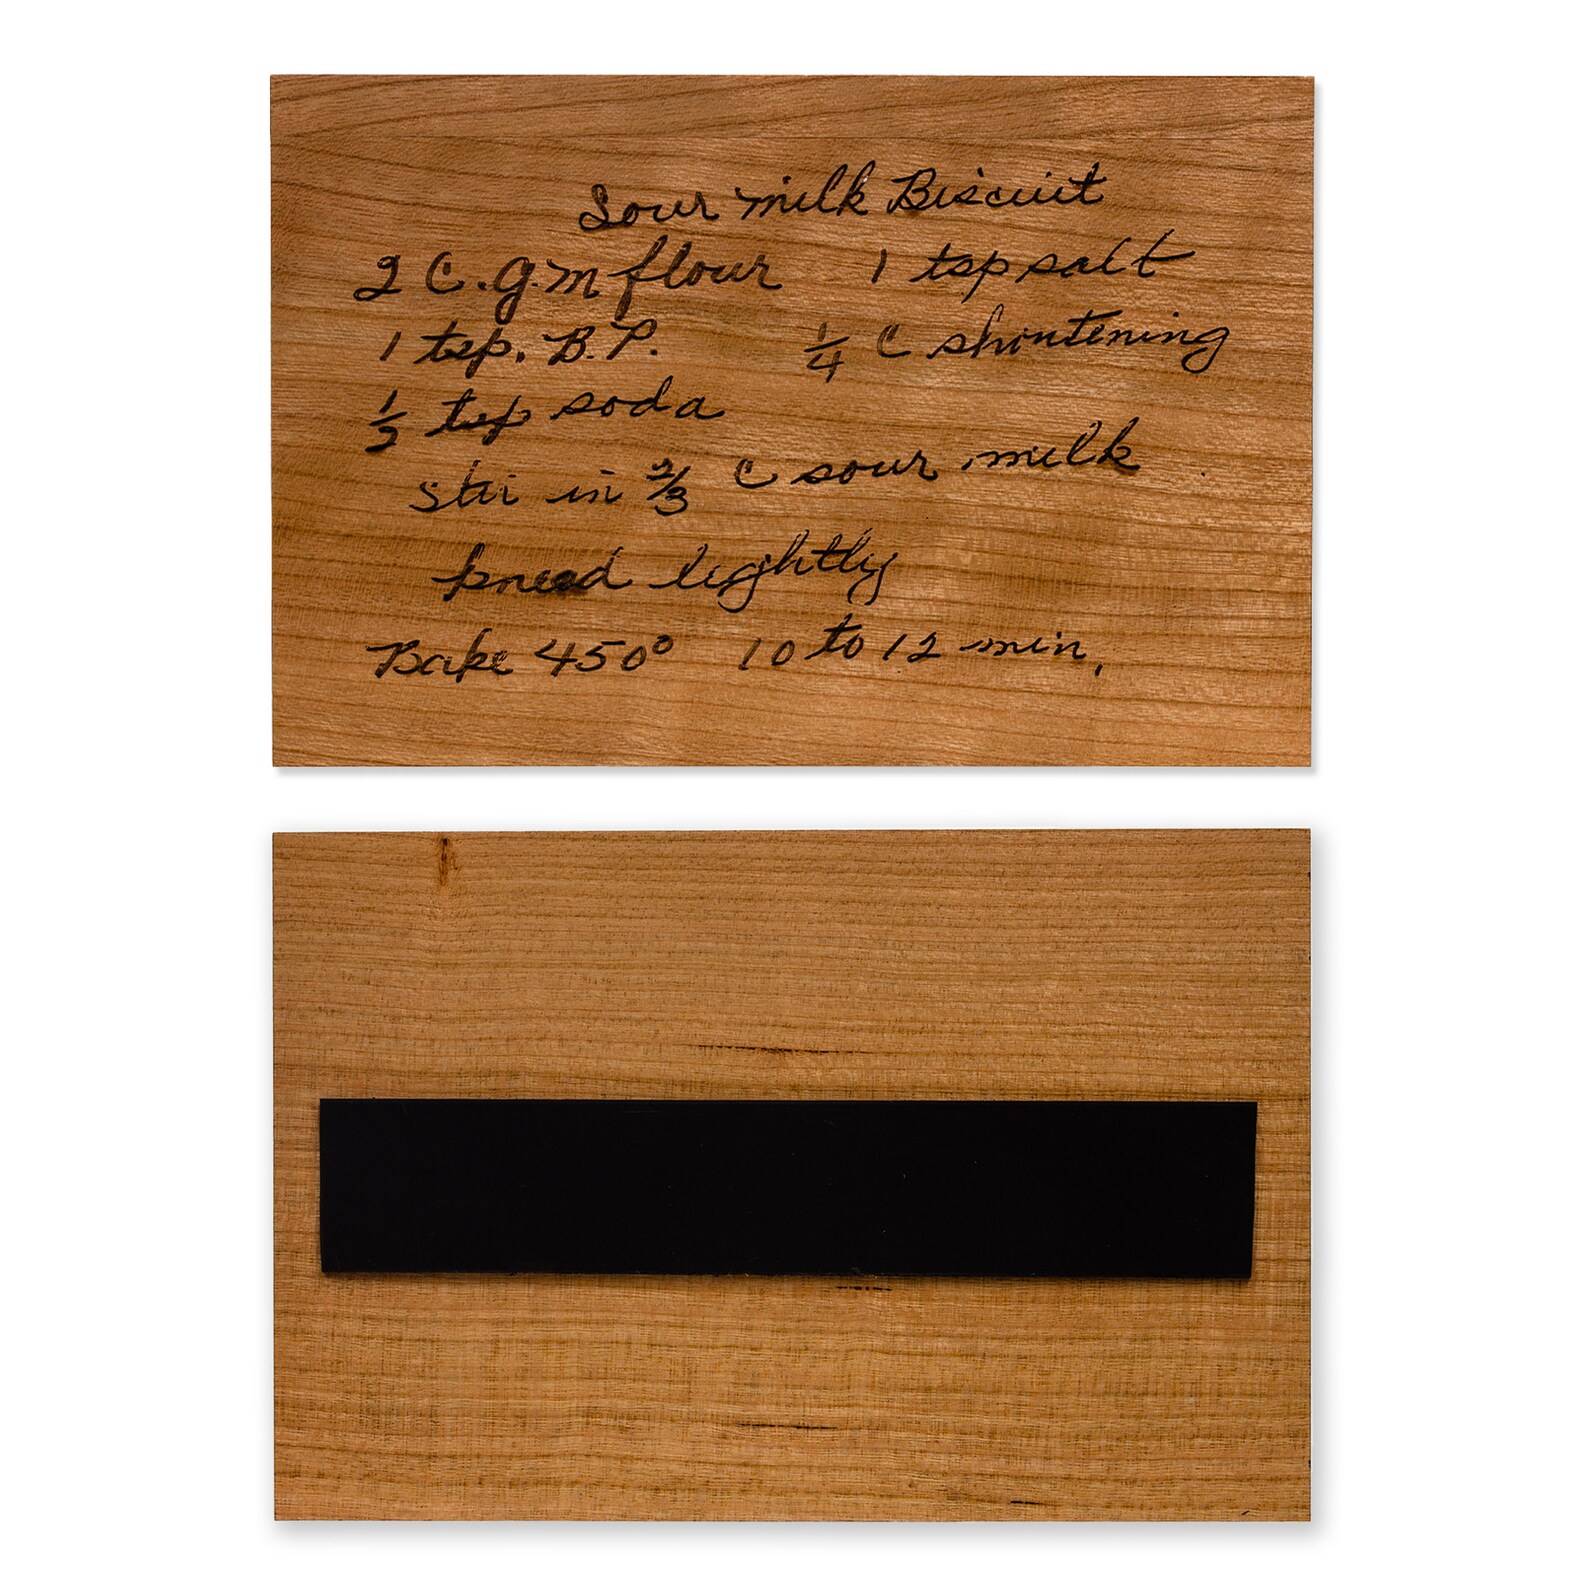 Sour Milk Biscuit
2 C. G.M flour 1 tsp salt
1 tsp. B.P. 1/4 C shortening
1/2 tsp soda
stir in 2/3 C sour milk
knead lightly
Bake 450° 10 to 12 min.